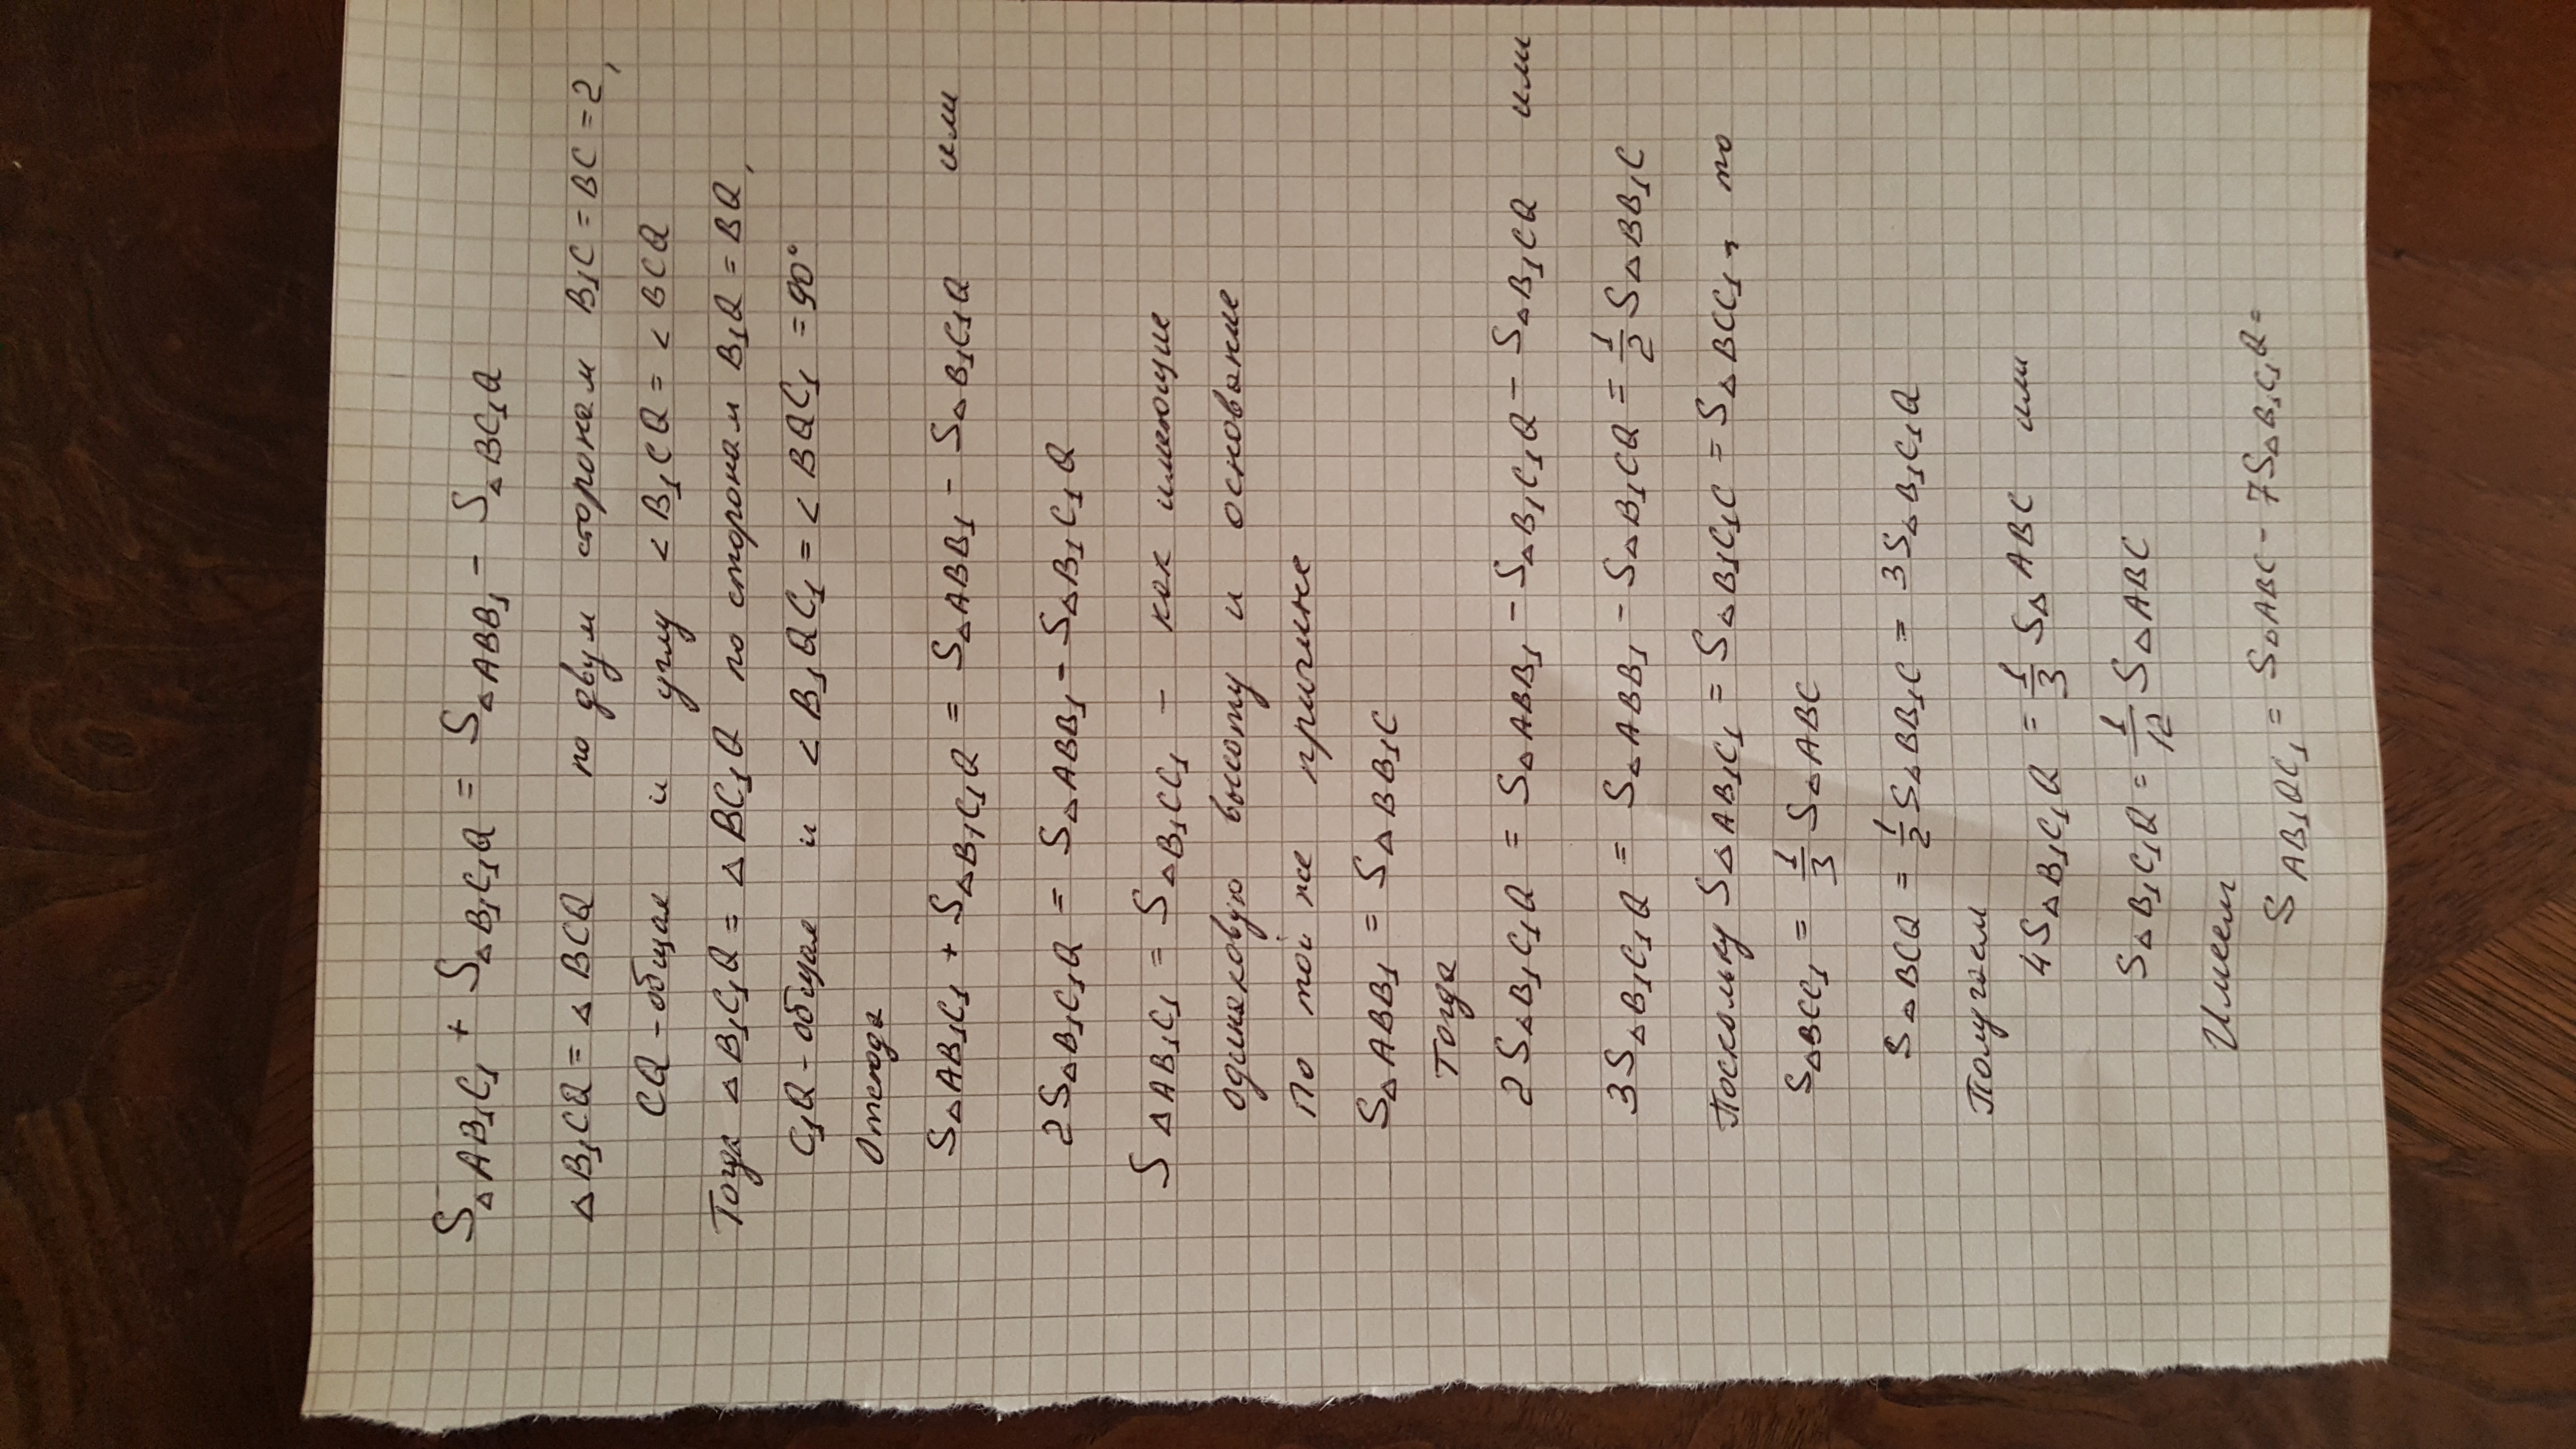 S△AB₁C₁ + S△B₁C₁Q = S△ABB₁ - S△BC₁Q
△B₁CQ = △BCQ по двум сторонам B₁C = BC = 2,
CQ - общая и углу <B₁CQ = <BCQ
Тогда △B₁C₁Q = △BC₁Q по сторонам B₁Q = BQ,
C₁Q - общая и <B₁QC₁ = <BQC₁ = 90°
Отсюда
S△AB₁C₁ + S△B₁C₁Q = S△ABB₁ - S△B₁C₁Q или
2S△B₁C₁Q = S△ABB₁ - S△B₁C₁Q
S△AB₁C₁ = S△B₁CC₁ - как имеющие
одинаковую высоту и основание
По той же причине
S△ABB₁ = S△BB₁C
Тогда
2S△B₁C₁Q = S△ABB₁ - S△B₁C₁Q - S△B₁CQ или
3S△B₁C₁Q = S△ABB₁ - S△B₁CQ = 1/2 S△BB₁C
Поскольку S△AB₁C₁ = S△B₁C₁C = S△BCC₁, то
S△BCC₁ = 1/3 S△ABC
S△BCQ = 1/2 S△BB₁C = 3S△B₁C₁Q
Получаем
4S△B₁C₁Q = 1/3 S△ABC или
S△B₁C₁Q = 1/12 S△ABC
Имеем
S AB₁QC₁ = S△ABC - 7S△B₁C₁Q =